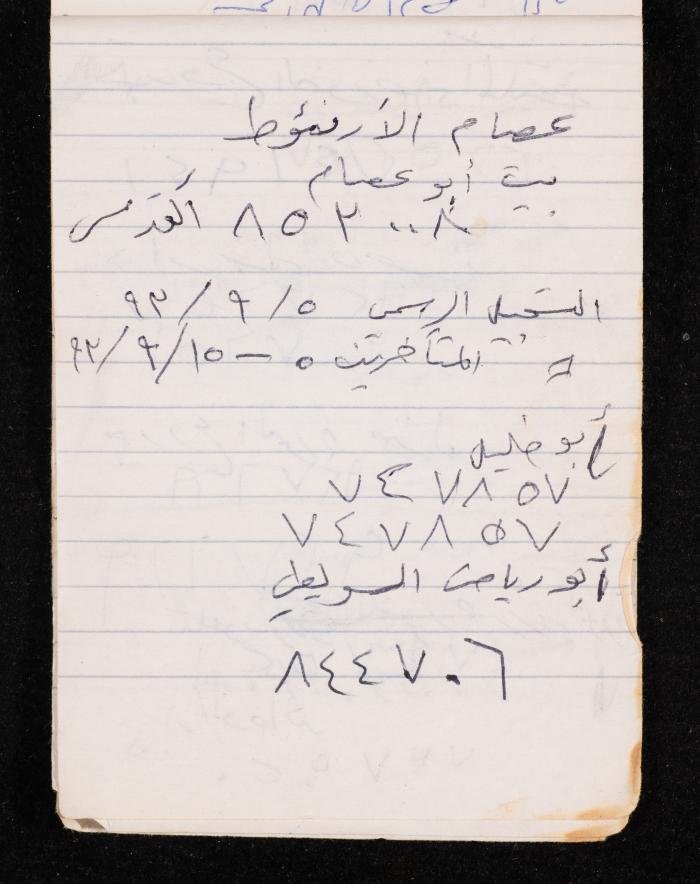 عصام الأرنؤوط
بيت أبو عصام
٨٥٢٠٠٨ القدس
التسجيل الرسمي ٥/٩/٩٣
" المتأخرين ٥ – ١٥/٩/٩٣
أبو خليل
٧٤٧٨٥٧
٧٤٧٨٥٧
أبو رياض السويطي
٨٤٤٧٠٦